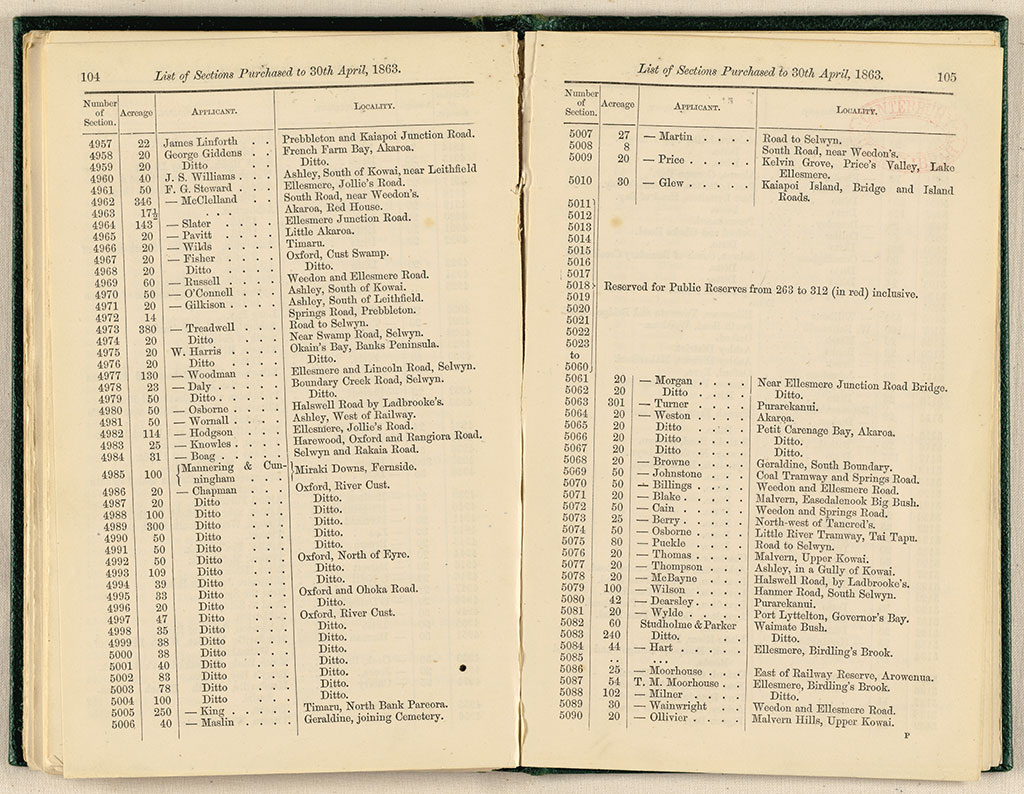 104 List of Sections Purchased to 30th April, 1863.
Number of Section. Acreage APPLICANT. LOCALITY.
4957 22 James Linforth . . Prebbleton and Kaiapoi Junction Road.
4958 20 George Giddens . . French Farm Bay, Akaroa.
4959 20 Ditto . . . Ditto.
4960 40 J. S. Williams . . . Ashley, South of Kowai, near Leithfield
4961 50 F. G. Steward . . . Ellesmere, Jollie's Road.
4962 346 — McClelland . . South Road, near Weedon's.
4963 17½ . . . Akaroa, Red House.
4964 143 — Slater . . . . Ellesmere Junction Road.
4965 20 — Pavitt . . . . Little Akaroa.
4966 20 — Wilds . . . . Timaru.
4967 20 — Fisher . . . . Oxford, Cust Swamp.
4968 20 Ditto . . . . Ditto.
4969 60 — Russell . . . . Weedon and Ellesmere Road.
4970 50 — O'Connell . . . Ashley, South of Kowai.
4971 20 — Gilkison . . . . Ashley, South of Leithfield.
4972 14 Springs Road, Prebbleton.
4973 380 — Treadwell . . . Road to Selwyn.
4974 20 Ditto . . . Near Swamp Road, Selwyn.
4975 20 W. Harris . . . . Okain's Bay, Banks Peninsula.
4976 20 Ditto . . . . Ditto.
4977 130 — Woodman . . . Ellesmere and Lincoln Road, Selwyn.
4978 23 — Daly . . . . . Boundary Creek Road, Selwyn.
4979 50 Ditto . . . . . Ditto.
4980 50 — Osborne . . . . Halswell Road by Ladbrooke's.
4981 50 — Wornall . . . . Ashley, West of Railway.
4982 114 — Hodgson . . . Ellesmere, Jollie's Road.
4983 25 — Knowles . . . . Harewood, Oxford and Rangiora Road.
4984 31 — Boag . . . . . Selwyn and Rakaia Road.
4985 100 { Mannering & Cunningham . . . } Miraki Downs, Fernside.
4986 20 — Chapman . . . Oxford, River Cust.
4987 20 Ditto . . . Ditto.
4988 100 Ditto . . . Ditto.
4989 300 Ditto . . . Ditto.
4990 50 Ditto . . . Ditto.
4991 50 Ditto . . . Ditto.
4992 50 Ditto . . . Oxford, North of Eyre.
4993 109 Ditto . . . Ditto.
4994 39 Ditto . . . Ditto.
4995 33 Ditto . . . Oxford and Ohoka Road.
4996 20 Ditto . . . Ditto.
4997 47 Ditto . . . Oxford, River Cust.
4998 35 Ditto . . . Ditto.
4999 38 Ditto . . . Ditto.
5000 38 Ditto . . . Ditto.
5001 40 Ditto . . . Ditto.
5002 83 Ditto . . . Ditto.
5003 78 Ditto . . . Ditto.
5004 100 Ditto . . . Ditto.
5005 250 — King . . . . . Timaru, North Bank Pareora.
5006 40 — Maslin . . . . Geraldine, joining Cemetery.
List of Sections Purchased to 30th April, 1863. 105
Number of Section. Acreage APPLICANT. LOCALITY.
5007 27 — Martin . . . . Road to Selwyn.
5008 8 South Road, near Weedon's.
5009 20 — Price . . . . . Kelvin Grove, Price's Valley, Lake
Ellesmere.
5010 30 — Glew . . . . . Kaiapoi Island, Bridge and Island
Roads.
5011
5012
5013
5014
5015
5016
5017
5018 } Reserved for Public Reserves from 263 to 312 (in red) inclusive.
5019
5020
5021
5022
5023
to
5060
5061 20 — Morgan . . . . Near Ellesmere Junction Road Bridge.
5062 20 Ditto . . . . Ditto.
5063 301 — Turner . . . . Purarekanui.
5064 20 — Weston . . . . Akaroa.
5065 20 Ditto . . . . Petit Carenage Bay, Akaroa.
5066 20 Ditto . . . . Ditto.
5067 20 Ditto . . . . Ditto.
5068 20 — Browne . . . . Geraldine, South Boundary.
5069 50 — Johnstone . . . Coal Tramway and Springs Road.
5070 50 — Billings . . . . Weedon and Ellesmere Road.
5071 20 — Blake . . . . . Malvern, Easedalenook Big Bush.
5072 50 — Cain . . . . . Weedon and Springs Road.
5073 25 — Berry . . . . . North-west of Tancred's.
5074 50 — Osborne . . . . Little River Tramway, Tai Tapu.
5075 80 — Puckle . . . . Road to Selwyn.
5076 20 — Thomas . . . . Malvern, Upper Kowai.
5077 20 — Thompson . . . Ashley, in a Gully of Kowai.
5078 20 — McBayne . . . Halswell Road, by Ladbrooke's.
5079 100 — Wilson . . . . Hanmer Road, South Selwyn.
5080 42 — Dearsley . . . . Purarekanui.
5081 20 — Wylde . . . . Port Lyttelton, Governor's Bay.
5082 60 Studholme & Parker Waimate Bush.
5083 240 Ditto. Ditto.
5084 44 — Hart . . . . . Ellesmere, Birdling's Brook.
5085 .. ...
5086 25 — Moorhouse . . . East of Railway Reserve, Arowenua.
5087 54 T. M. Moorhouse . . Ellesmere, Birdling's Brook.
5088 102 — Milner . . . . Ditto.
5089 30 — Wainwright . . . Weedon and Ellesmere Road.
5090 20 — Ollivier . . . . Malvern Hills, Upper Kowai.
P